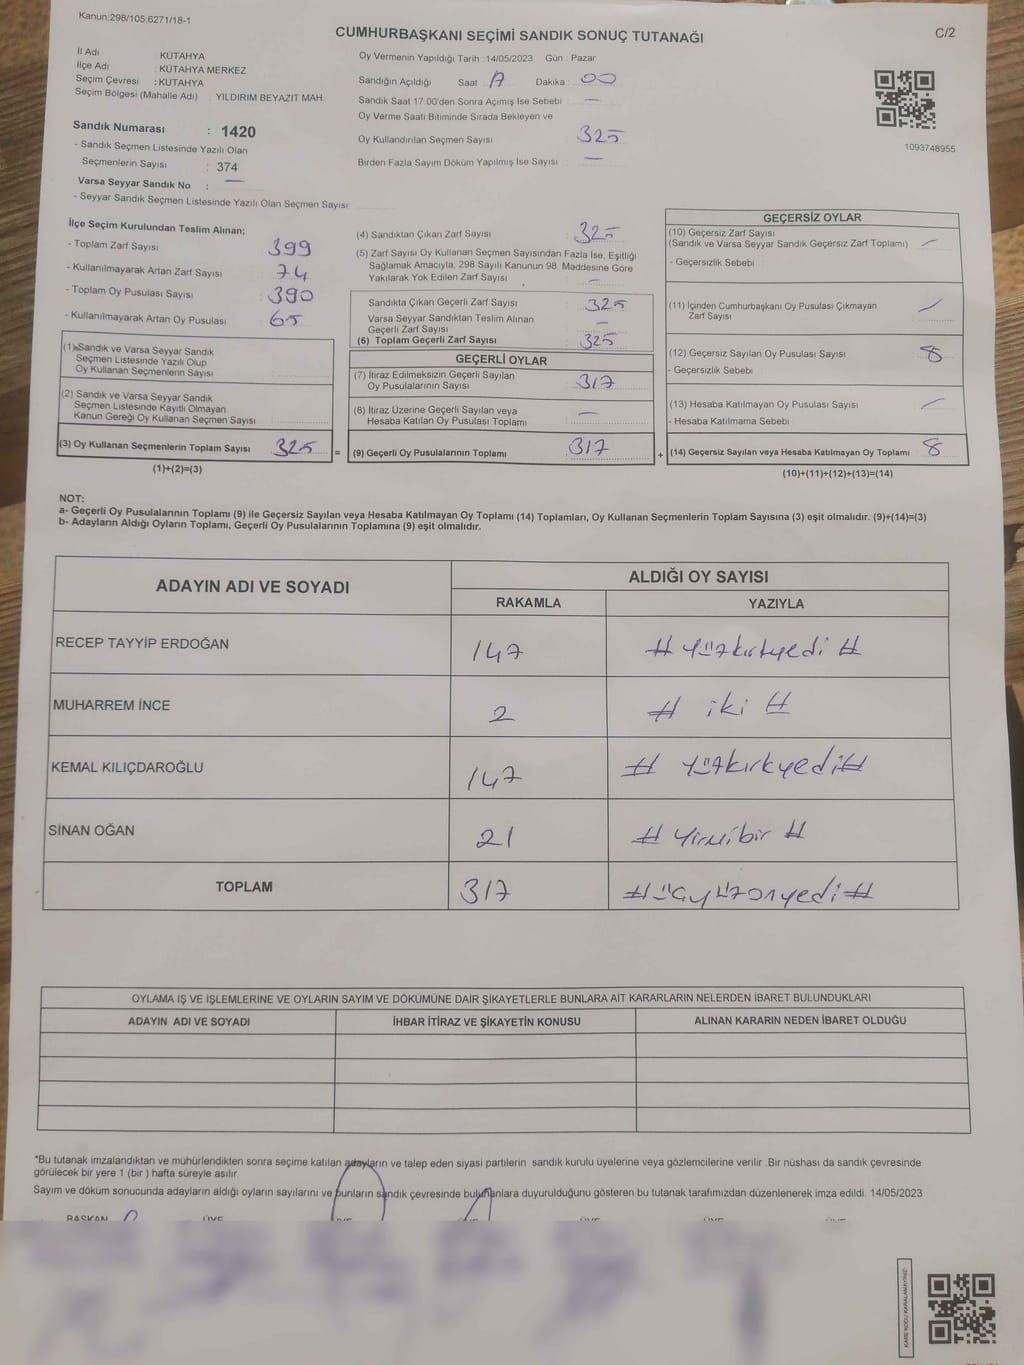 Kanun:298/105;6271/18-1
C/2
CUMHURBAŞKANI SEÇİMİ SANDIK SONUÇ TUTANAĞI
İl Adı : KÜTAHYA
İlçe Adı : KÜTAHYA MERKEZ
Seçim Çevresi : KÜTAHYA
Seçim Bölgesi (Mahalle Adı) : YILDIRIM BEYAZIT MAH.
Sandık Numarası : 1420
- Sandık Seçmen Listesinde Yazılı Olan
Seçmenlerin Sayısı : 374
Varsa Seyyar Sandık No : —
- Seyyar Sandık Seçmen Listesinde Yazılı Olan Seçmen Sayısı
Oy Vermenin Yapıldığı Tarih :14/05/2023 Gün : Pazar
Sandığın Açıldığı Saat 17 Dakika : 00
Sandık Saat 17:00'den Sonra Açımış İse Sebebi : —
Oy Verme Saati Bitiminde Sırada Bekleyen ve
Oy Kullandırılan Seçmen Sayısı : 325
Birden Fazla Sayım Döküm Yapılmış İse Sayısı : —
1093748955
İlçe Seçim Kurulundan Teslim Alınan;
- Toplam Zarf Sayısı : 399
- Kullanılmayarak Artan Zarf Sayısı : 74
- Toplam Oy Pusulası Sayısı : 390
- Kullanılmayarak Artan Oy Pusulası : 65
(1) Sandık ve Varsa Seyyar Sandık
Seçmen Listesinde Yazılı Olup
Oy Kullanan Seçmenlerin Sayısı
(2) Sandık ve Varsa Seyyar Sandık
Seçmen Listesinde Kayıtlı Olmayan
Kanun Gereği Oy Kullanan Seçmen Sayısı
(3) Oy Kullanan Seçmenlerin Toplam Sayısı 325
(1)+(2)=(3)
(4) Sandıktan Çıkan Zarf Sayısı : 325
(5) Zarf Sayısı Oy Kullanan Seçmen Sayısından Fazla İse, Eşitliği
Sağlamak Amacıyla; 298 Sayılı Kanunun 98. Maddesine Göre
Yakılarak Yok Edilen Zarf Sayısı : —
Sandıkta Çıkan Geçerli Zarf Sayısı : 325
Varsa Seyyar Sandıktan Teslim Alınan
Geçerli Zarf Sayısı : —
(6) Toplam Geçerli Zarf Sayısı : 325
GEÇERLİ OYLAR
(7) İtiraz Edilmeksizin Geçerli Sayılan
Oy Pusulalarının Sayısı : 317
(8) İtiraz Üzerine Geçerli Sayılan veya
Hesaba Katılan Oy Pusulası Toplamı : —
= (9) Geçerli Oy Pusulalarının Toplamı : 317
GEÇERSİZ OYLAR
(10) Geçersiz Zarf Sayısı
(Sandık ve Varsa Seyyar Sandık Geçersiz Zarf Toplamı) : —
- Geçersizlik Sebebi :
(11) İçinden Cumhurbaşkanı Oy Pusulası Çıkmayan
Zarf Sayısı : —
(12) Geçersiz Sayılan Oy Pusulası Sayısı : 8
- Geçersizlik Sebebi :
(13) Hesaba Katılmayan Oy Pusulası Sayısı : —
- Hesaba Katılmama Sebebi :
+ (14) Geçersiz Sayılan veya Hesaba Katılmayan Oy Toplamı : 8
(10)+(11)+(12)+(13)=(14)
NOT:
a- Geçerli Oy Pusulalarının Toplamı (9) ile Geçersiz Sayılan veya Hesaba Katılmayan Oy Toplamı (14) Toplamları, Oy Kullanan Seçmenlerin Toplam Sayısına (3) eşit olmalıdır. (9)+(14)=(3)
b- Adayların Aldığı Oyların Toplamı, Geçerli Oy Pusulalarının Toplamına (9) eşit olmalıdır.
ADAYIN ADI VE SOYADI
ALDIĞI OY SAYISI
RAKAMLA YAZIYLA
RECEP TAYYİP ERDOĞAN 147 # Yüzkırkyedi #
MUHARREM İNCE 2 # iki #
KEMAL KILIÇDAROĞLU 147 # Yüzkırkyedi #
SİNAN OĞAN 21 # Yirmibir #
TOPLAM 317 # üçyüzonyedi #
OYLAMA İŞ VE İŞLEMLERİNE VE OYLARIN SAYIM VE DÖKÜMÜNE DAİR ŞİKAYETLERLE BUNLARA AİT KARARLARIN NELERDEN İBARET BULUNDUKLARI
ADAYIN ADI VE SOYADI İHBAR İTİRAZ VE ŞİKAYETİN KONUSU ALINAN KARARIN NEDEN İBARET OLDUĞU
*Bu tutanak imzalandıktan ve mühürlendikten sonra seçime katılan adayların ve talep eden siyasi partilerin sandık kurulu üyelerine veya gözlemcilerine verilir .Bir nüshası da sandık çevresinde
görülecek bir yere 1 (bir ) hafta süreyle asılır.
Sayım ve döküm sonucunda adayların aldığı oyların sayılarını ve bunların sandık çevresinde bulunanlara duyurulduğunu gösteren bu tutanak tarafımızdan düzenlenerek imza edildi. 14/05/2023
BAŞKAN ÜYE ÜYE ÜYE ÜYE ÜYE
KARE KODU KARALAMAYINIZ!